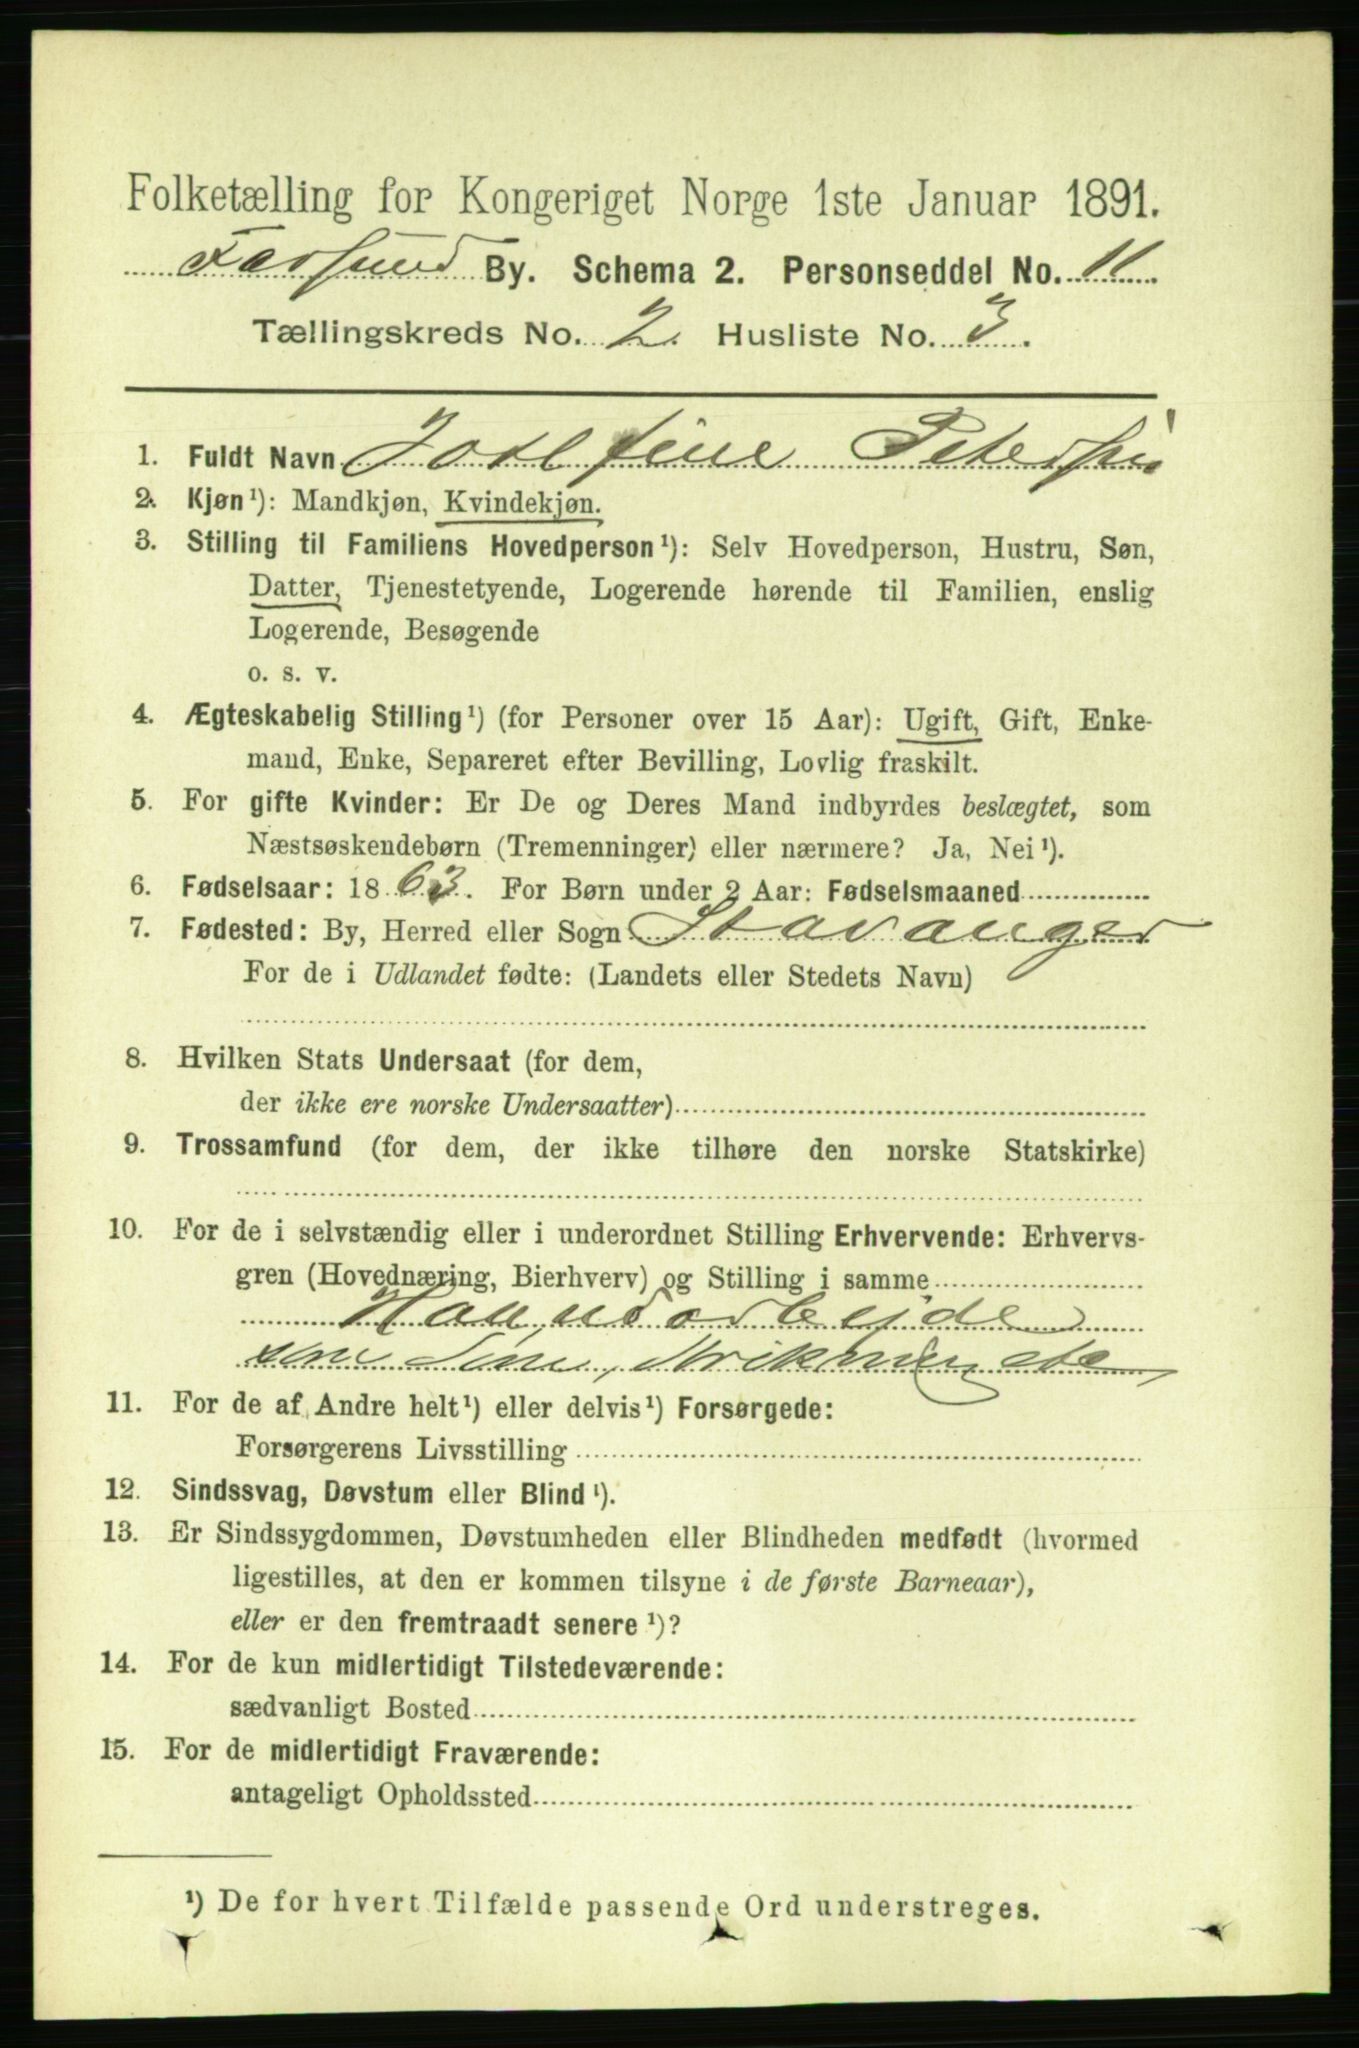 Folketælling for Kongeriget Norge 1ste Januar 1891.
Farsund By. Schema 2. Personseddel No. 11.
Tællingskreds No. 2. Husliste No. 3.
1. Fuldt Navn Josefine Petersen
2. Kjøn¹): Mandkjøn, Kvindekjøn.
3. Stilling til Familiens Hovedperson¹): Selv Hovedperson, Hustru, Søn,
Datter, Tjenestetyende, Logerende hørende til Familien, enslig
Logerende, Besøgende
o. s. v.
4. Ægteskabelig Stilling¹) (for Personer over 15 Aar): Ugift, Gift, Enke-
mand, Enke, Separeret efter Bevilling, Lovlig fraskilt.
5. For gifte Kvinder: Er De og Deres Mand indbyrdes beslægtet, som
Næstsøskendebørn (Tremenninger) eller nærmere? Ja, Nei¹).
6. Fødselsaar: 1863. For Børn under 2 Aar: Fødselsmaaned
7. Fødested: By, Herred eller Sogn Stavanger
For de i Udlandet fødte: (Landets eller Stedets Navn)
8. Hvilken Stats Undersaat (for dem,
der ikke ere norske Undersaatter)
9. Trossamfund (for dem, der ikke tilhøre den norske Statskirke)
10. For de i selvstændig eller i underordnet Stilling Erhvervende: Erhvervs-
gren (Hovednæring, Bierhverv) og Stilling i samme
Haandarbejde
som Søm, Strikning etc
11. For de af Andre helt¹) eller delvis¹) Forsørgede:
Forsørgerens Livsstilling
12. Sindssvag, Døvstum eller Blind¹).
13. Er Sindssygdommen, Døvstumheden eller Blindheden medfødt (hvormed
ligestilles, at den er kommen tilsyne i de første Barneaar),
eller er den fremtraadt senere¹)?
14. For de kun midlertidigt Tilstedeværende:
sædvanligt Bosted
15. For de midlertidigt Fraværende:
antageligt Opholdssted
¹) De for hvert Tilfælde passende Ord understreges.